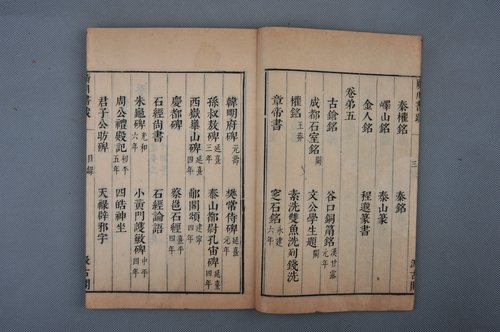 秦權銘 秦銘
嶧山銘 泰山篆
金人銘 程邈篆書
卷第五
古鎗銘 谷口銅甬銘 漢甘露元年
成都石室銘 闕 文公學生題 闕
權銘 王莽 素洗雙魚洗列錢洗
章帝書 窆石銘 永建六年
韓明府碑 元壽 樊常侍碑 延熹元年
孫叔敖碑 延熹三年 泰山都尉孔宙碑 延熹四年
西嶽華山碑 延熹四年 郙閣頌 建寧四年
慶都碑 蔡邕石經 熹平四年
石經尚書 石經論語
朱龜碑 光和六年 小黃門譙敏碑 中平四年
周公禮殿記 初平五年 四皓神坐
君子公昉碑 天祿辟邪字
目錄
汲古閣
三
汲古閣